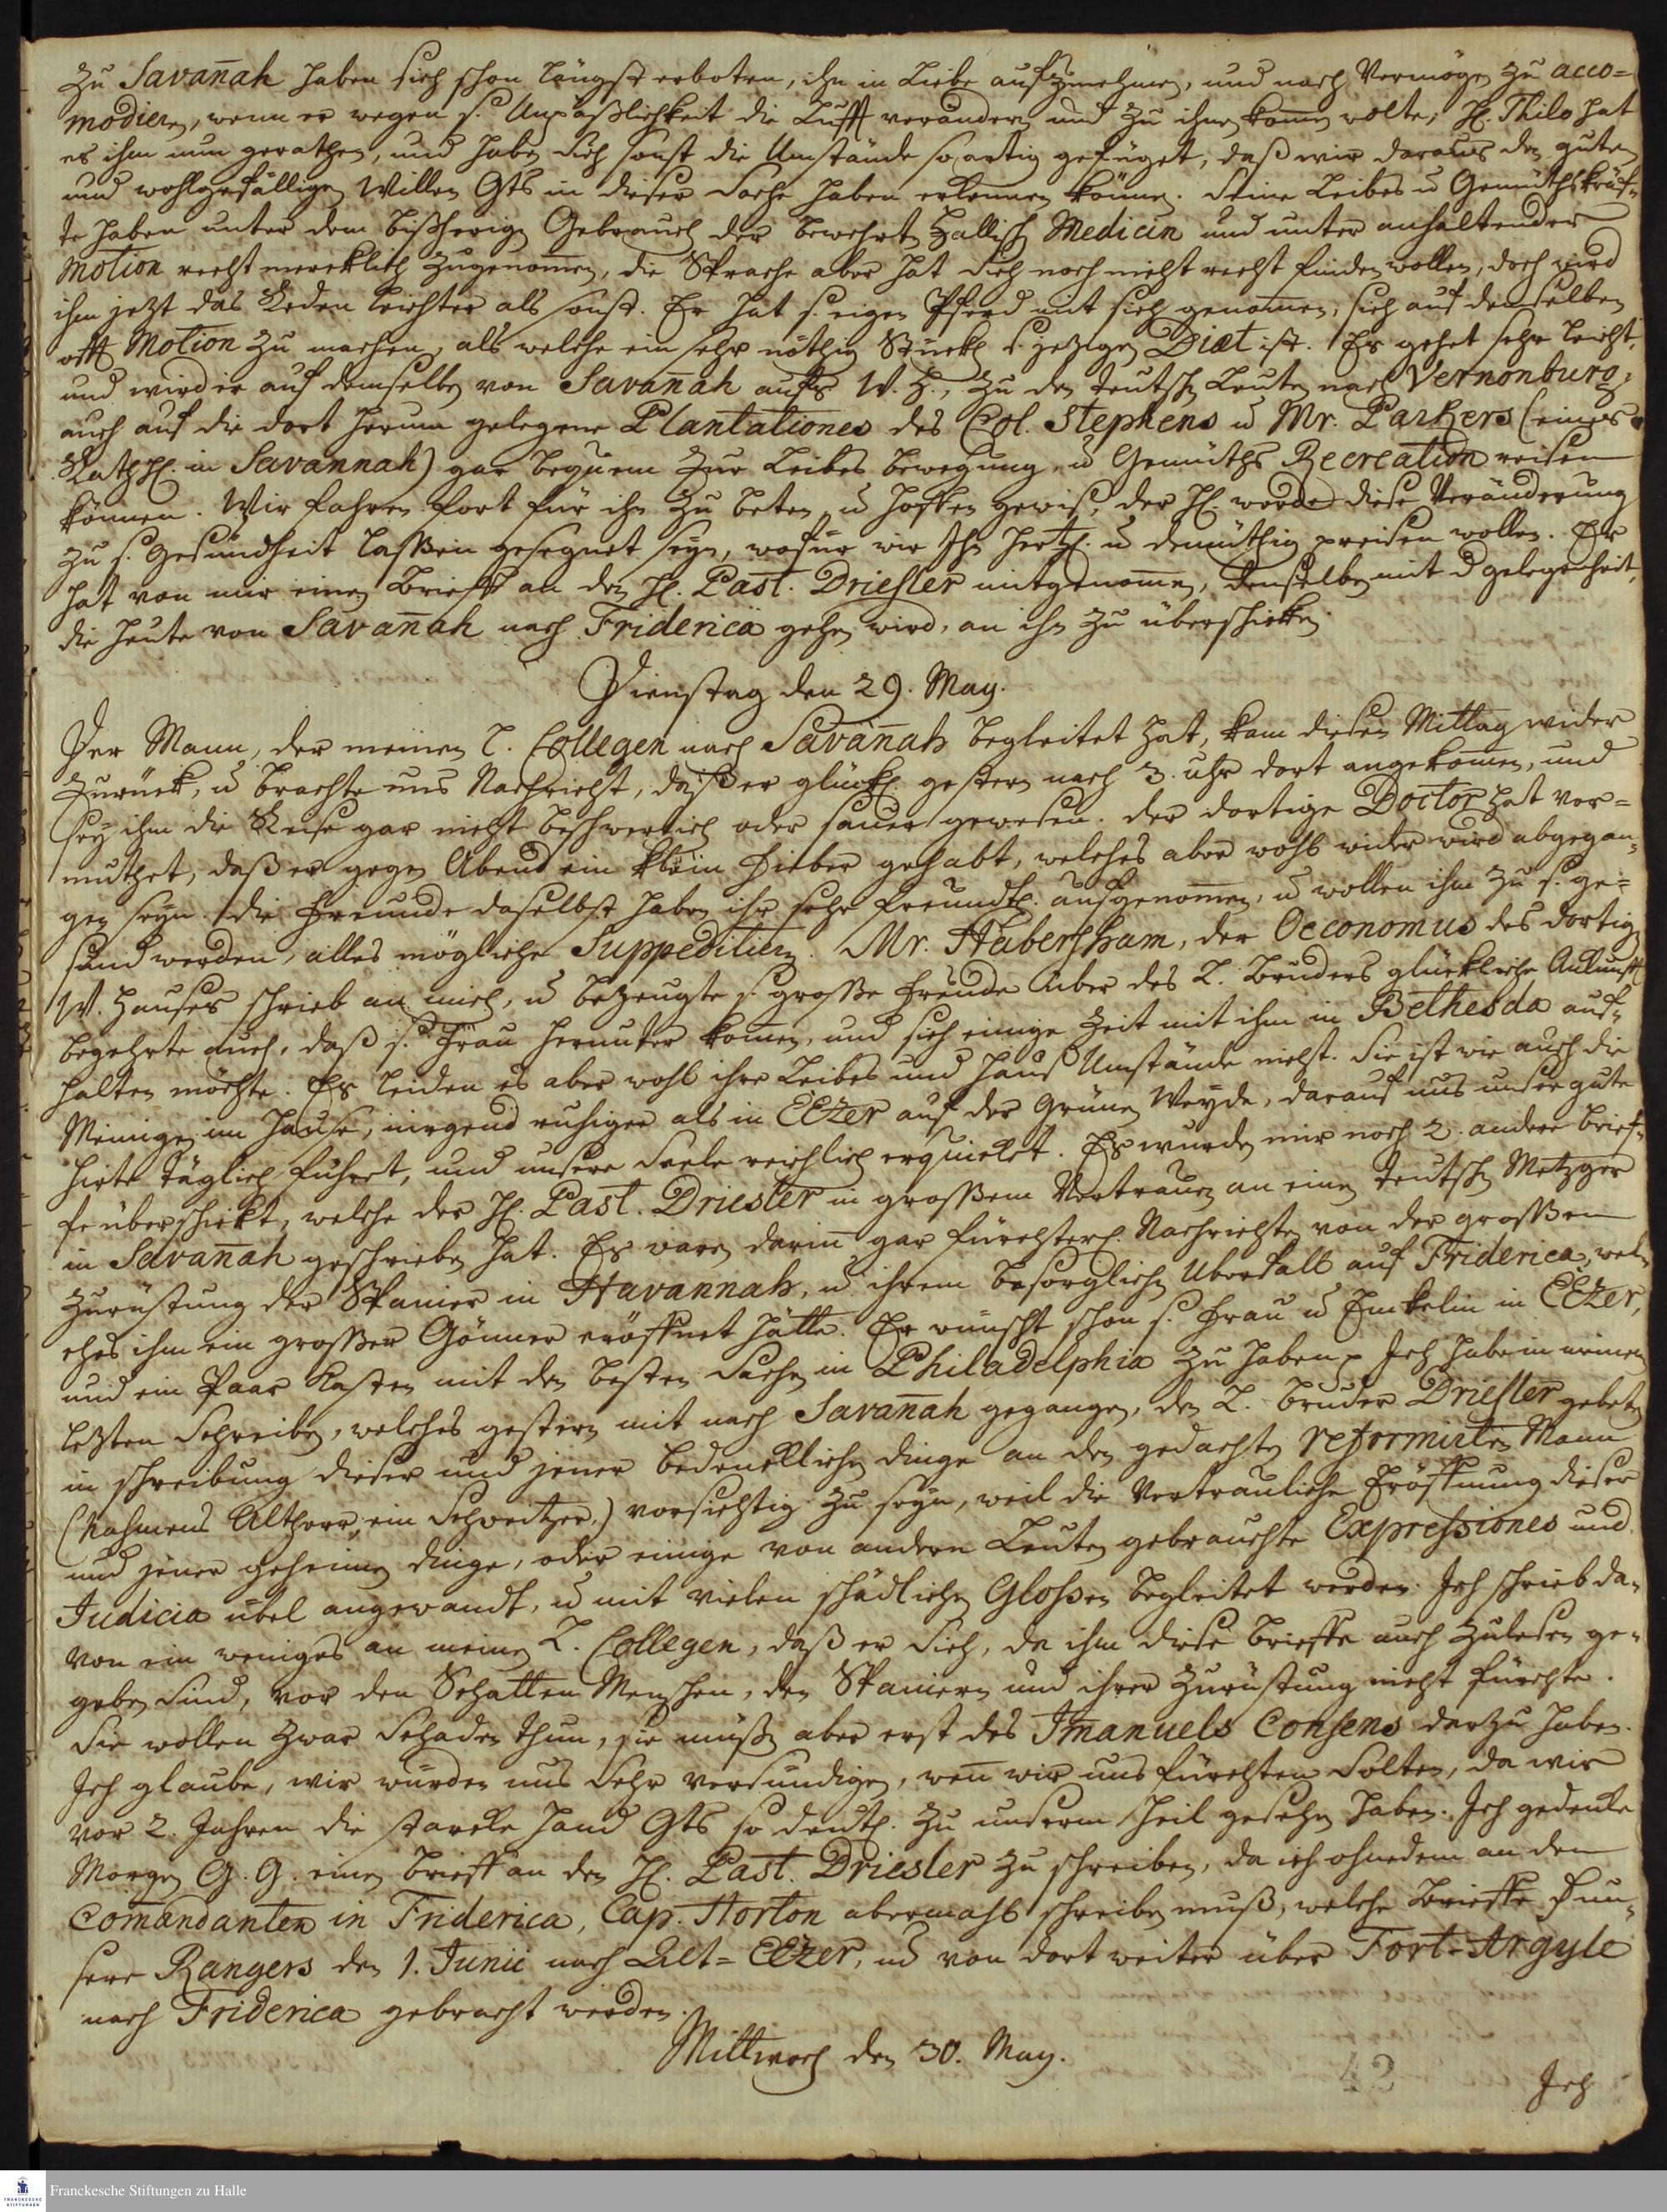 zu Savañah haben sich schon längst erboten, ihn in Liebe aufzunehmen, und nach Vermögen zu acco=
modiern, wenn er wegen s. Unpäßlichkeit die Lufft verändern und zu ihnen kom̄en wolte, H. Thilo hat
es ihm nun gerathen, und haben sich sonst die Umstände so artig gefüget, daß wir daraus den guten
und wohlgefälligen Willen Gts in dieser Sache haben erkennen können. Seine Leibes u Gemüthskräf=
te haben unter dem bißherigen Gebrauch der bewehrten Hallisch Medicin und unter anhaltender
Motion recht mercklich zugenom̄en, die Sprache aber hat sich noch nicht recht finden wollen, doch wird
ihm jetzt das Reden leichter als sonst. Er hat s. eigen Pferd mit sich genom̄en, sich auf demselben
offt Motion zu machen, als welche ein sehr nöthig Stück s. jetzigen Diæt ist. Es gehet sehr leicht,
und wird er auf demselben von Savañah aufs W. H., zu den teutschen Leuten nach Vernonburg,
auch auf die dort herum gelegene Plantationes des Col. Stephens u Mr. Parkers (eines
Rathsh. in Savannah) gar bequem zur Leibes bewegung u Gemüths Recreation reisen
können. Wir fahren fort für ihn zu beten, u hoffen gewiß, der H. werde diese Veränderung
zu s. Gesundheit laßen gesegnet seyn, wofür wir Ihn hertzl. u demüthig preisen wollen. Er
hat von mir einen Brieff an den H. Past. Driesler mitgenom̄en, denselben mit d gelegenheit,
die heute von Savañah nach Friderica gehen wird, an ihn zu überschicken
Dienstag den 29. May.
Der Mann, der meinen l. Collegen nach Savañah begleitet hat, kam diesen Mittag wider
zurück, u brachte uns Nachricht, daß er glückl. gestern nach 3. uhr dort angekom̄en, und
sey ihm die Reise gar nicht beschwerlich oder sauer gewesen. der dortige Doctor hat ver=
muthet, daß er gegen Abend ein klein Fieber gehabt, welches aber wohl wider wird abgegan=
gen seyn. Die Freunde daselbst haben ihn sehr freundl. aufgenom̄en, u wollen ihm zu s. ge=
sund werden, alles mögliche Suppeditiern. Mr. Habersham, der Oeconomus des dortigen
W. Hauses schrieb an mich, u bezeugte s. große Freude über des L. Bruders glückliche Ankunfft
begehrte auch, daß s. Frau herunter kom̄en, und sich einige Zeit mit ihm in Bethesda auf=
halten möchte. Es leiden es aber wohl ihre Leibes und Haus Umstände nicht. Sie ist wie auch die
Meinigen im Hause, nirgend ruhiger als in EEzer auf der Grünen Weyde, darauf uns unser gute
Hirte täglich führet, und unsere Seele reichlich erquicket. Es wurden mir noch 2. andere Brief=
fe überschickt, welche der H. Past. Driesler in großem Vertrauen an einen teutschen Metzger
in Savañah geschrieben hat. Es waren dariñ gar fürchterl. Nachrichten von der großen
Zurüstung der Spanier in Havannah, u ihrem besorglichen Uberfall auf Friderica, wel=
ches ihm ein großer Gönner eröffnet hätte. Er wünscht schon s. Frau u Enckelin in EEzer,
und ein Paar Kasten mit den besten Sachen in Philadelphia zu haben. Ich habe in meinem
letzten Schreiben, welches gestern mit nach Savañah gegangen, den L. Bruder Driesler gebeten
in schreibung dieser und jener bedencklichen dinge an den gedachten reformirten Mann
(Nahmens Altherr, ein Schweitzer,) vorsichtig zu seyn, weil die vertrauliche Eröffnung dieser
und jener geheimen dinge, oder einige von andern Leuten gebrauchte Expressiones und
Judicia übel angewandt, u mit vielen schädlichen Glossen begleitet werden. Ich schrieb da=
von ein weniges an meinen L. Collegen, daß er sich, da ihm diese Brieffe auch zulesen ge=
geben sind, vor den Schatten Menschen, den Spaniern und ihrer Zurüstung nicht fürchte.
Sie wollen zwar Schaden thun, sie müßen aber erst des Im̄anuels Consens darzu haben.
Ich glaube, wir würden uns sehr versündigen, weñ wir uns fürchten solten, da wir
vor 2. Jahren die starcke Hand Gts so deutl. zu unserm Heil gesehen haben. Ich gedencke
Morgen G. G. einen Brieff an den H. Past. Driesler zu schreiben, da ich ohnedem an den
Com̄andanten in Friderica, Cap. Horton abermahls schreiben muß, welche Brieffe d un=
sere Rangers den 1. Junii nach Alt=EEzer, u von dort weiter über Fort-Argyle
nach Friderica gebracht werden.
Mittwoch den 30. May.
42
Ich
Franckesche Stiftungen zu Halle